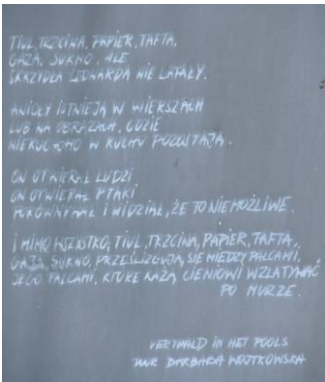 TIUL, TRZCINA, PAPIER, TAFTA,
GAZA, SUKNO, ALE
SKRZYDŁA LEONARDA NIE LATAŁY.
ANIOŁY ISTNIEJĄ W WIERSZACH
LUB NA OBRAZACH, GDZIE
NIERUCHOMO W RUCHU POZOSTAJĄ.
ON OTWIERAŁ LUDZI
ON OTWIERAŁ PTAKI
PORÓWNYWAŁ I WIDZIAŁ, ŻE TO NIEMOŻLIWE.
I MIMO WSZYSTKO, TIUL, TRZCINA, PAPIER, TAFTA,
GAZA, SUKNO, PRZEŚLIZGUJĄ SIĘ MIĘDZY PALCAMI,
JEGO PALCAMI, KTÓRE KAŻĄ CIENIOWI WZLATYWAĆ
PO MURZE.
VERTAALD IN HET POOLS
DOOR BARBARA WOJTKOWSKA